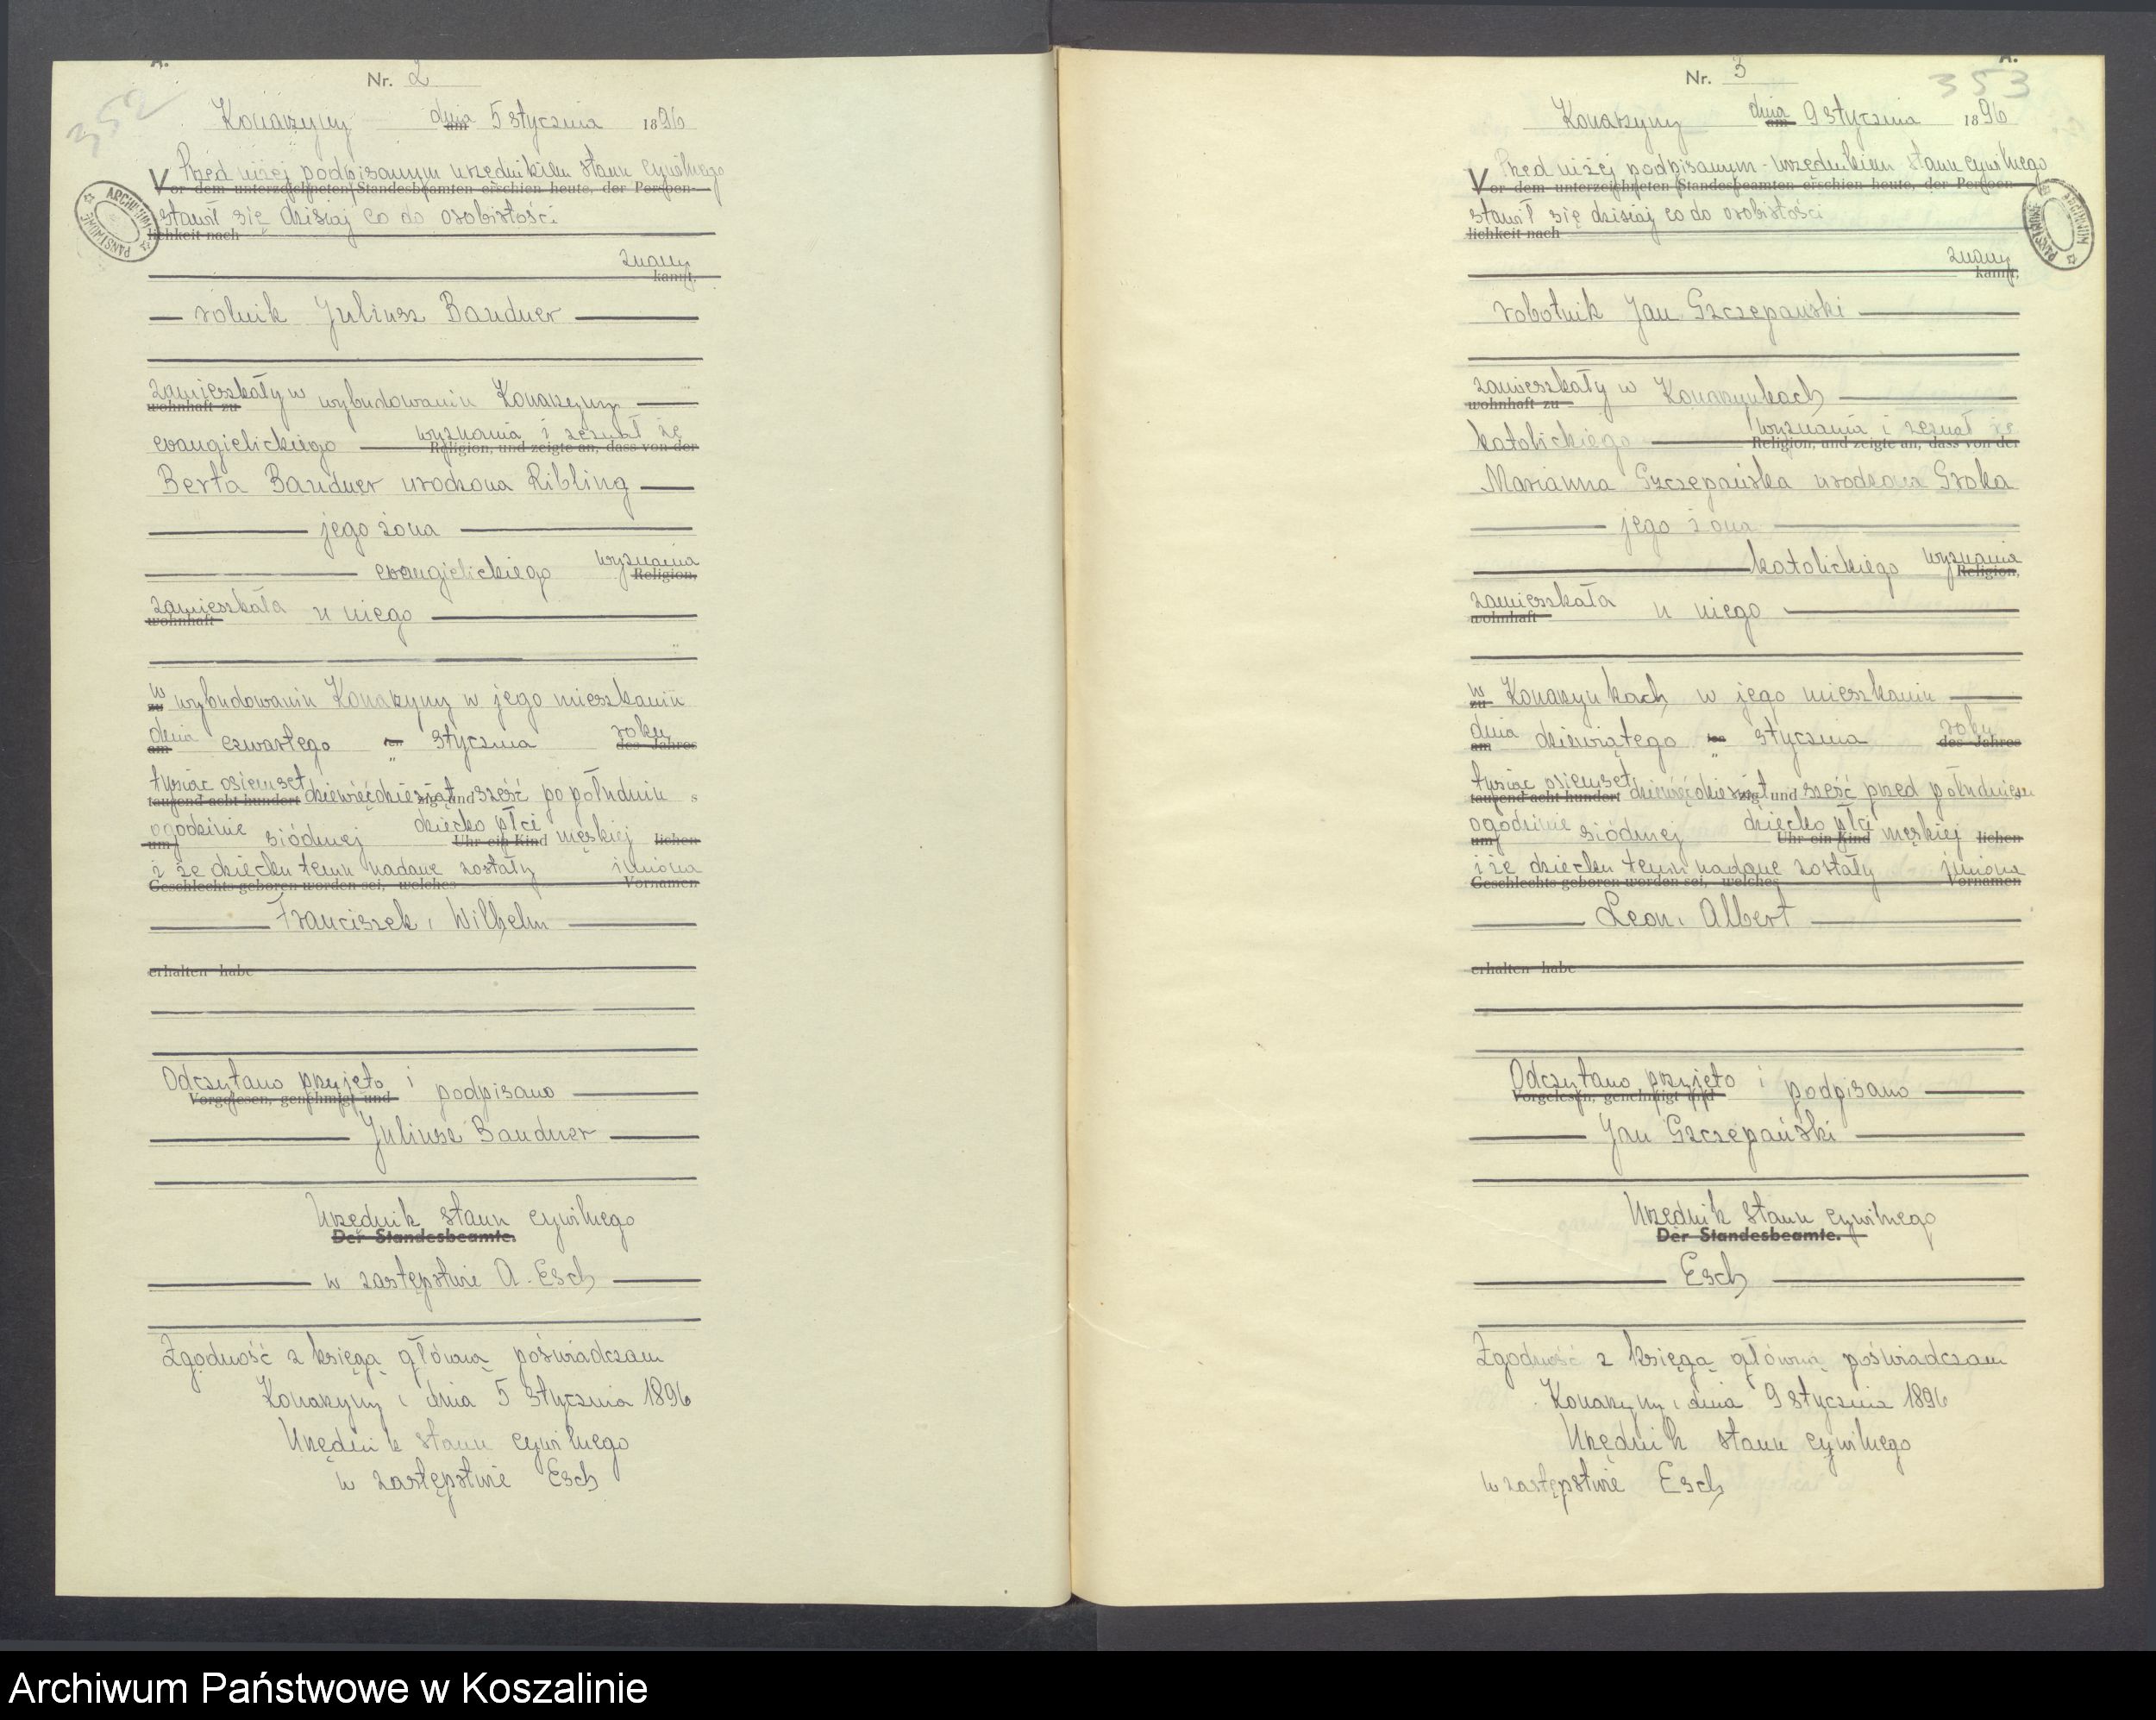 A.
Nr. 2
352
Konarzyny dnia am 5 stycznia 1896
Przed niżej podpisanym urzędnikiem stanu cywilnego
Vor dem unterzeichneten Standesbeamten erschien heute, der Persoen-
stawił się dzisiaj co do osobistości
lichkeit nach
znany
kannt,
rolnik Juliusz Bandner
zamieszkały w wybudowaniu Konarzyny
wohnhaft zu
ewangielickiego wyznania i zeznał że
Religion, und zeigte an, dass von der
Berta Bandner urodzona Ribling
jego żona
ewangielickiego wyznania
Religion,
zamieszkała u niego
wohnhaft
w wybudowaniu Konarzyny w jego mieszkaniu
zu
dnia czwartego ten stycznia roku
am des Jahres
tysiąc osiemset dziewięćdziesiąt zig und sześć po południu s
tausend acht hundert
ogodzinie siódmej dziecko płci męskiej lichen
um Uhr ein Kind
i że dziecku temu nadane zostały imiona
Geschlechts geboren worden sei, welches Vornamen
Franciszek, Wilhelm
erhalten habe
Odczytano przyjęto i podpisano
Vorgelesen, genehmigt und
Juliusz Bandner
Urzędnik stanu cywilnego
Der Standesbeamte.
w zastępstwie A. Esch
Zgodność z księgą główną poświadczam
Konarzyny, dnia 5 stycznia 1896
Urzędnik stanu cywilnego
w zastępstwie Esch
ARCHIWUM PAŃSTWOWE
A.
Nr. 3
353
Konarzyny dnia am 9 stycznia 1896
Przed niżej podpisanym urzędnikiem stanu cywilnego
Vor dem unterzeichneten Standesbeamten erschien heute, der Persoen-
stawił się dzisiaj co do osobistości
lichkeit nach
znany
kannt,
robotnik Jan Szczepański
zamieszkały w Konarzynkach
wohnhaft zu
katolickiego wyznania i zeznał że
Religion, und zeigte an, dass von der
Marianna Szczepańska urodzona Sroka
jego żona
katolickiego wyznania
Religion,
zamieszkała u niego
wohnhaft
w Konarzynkach w jego mieszkaniu
zu
dnia dziewiątego ten stycznia roku
am des Jahres
tysiąc osiemset dziewięćdziesiąt zig und sześć przed południem
tausend acht hundert
ogodzinie siódmej dziecko płci męskiej lichen
um Uhr ein Kind
i że dziecku temu nadane zostały imiona
Geschlechts geboren worden sei, welches Vornamen
Leon, Albert
erhalten habe
Odczytano przyjęto i podpisano
Vorgelesen, genehmigt und
Jan Szczepański
Urzędnik stanu cywilnego
Der Standesbeamte.
Esch
Zgodność z księgą główną poświadczam
Konarzyny, dnia 9 stycznia 1896
Urzędnik stanu cywilnego
w zastępstwie Esch
ARCHIWUM PAŃSTWOWE
Archiwum Państwowe w Koszalinie